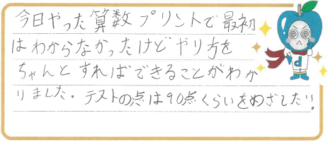 今日やった算数プリントで最初
はわからなかったけどやり方を
ちゃんとすればできることがわか
りました。テストの点は90点くらいをめざしたい!
d